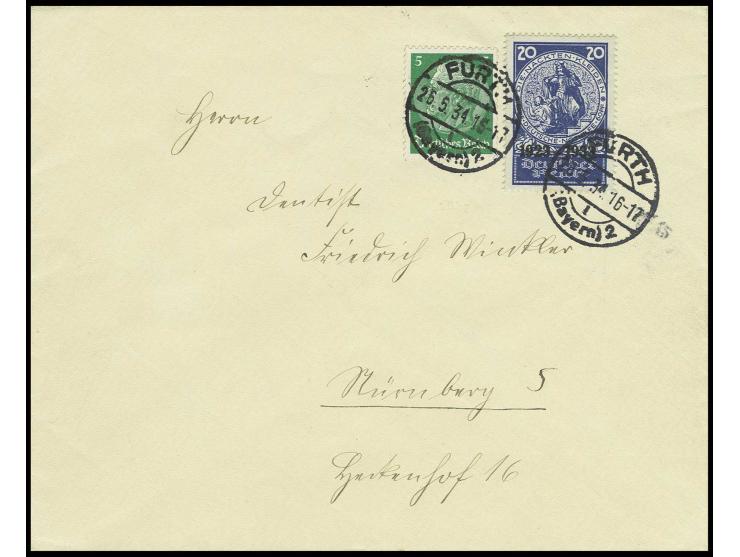 5
20 20
DIE NACKTEN KLEIDEN
Deutsches Reich
FÜRTH
26.5.34.16-17
(Bayern) 2
FÜRTH
34.16-17
1
(Bayern) 2
Herrn
Dentist
Friedrich Winkler
Nürnberg S
Heckenhof 16